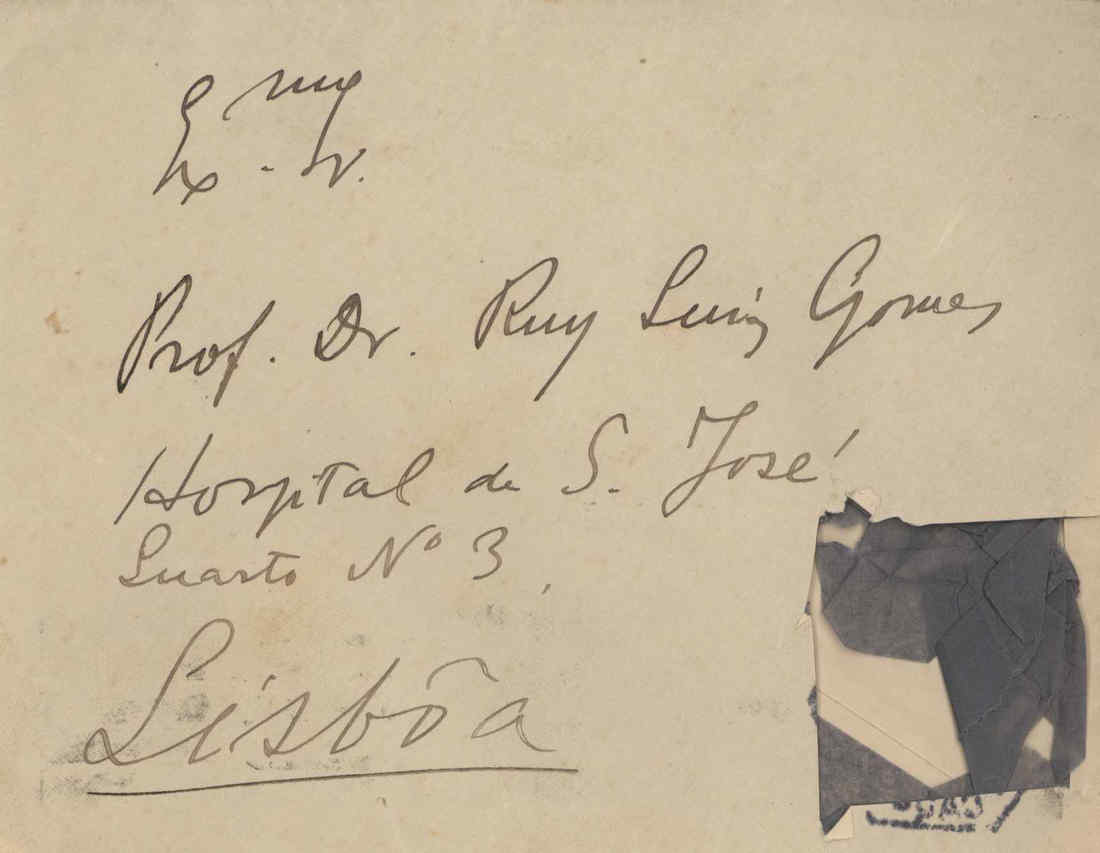 Ex.mo Sr.
Prof. Dr. Ruy Luiz Gomes
Hospital de S. José
Quarto Nº 3
Lisbôa